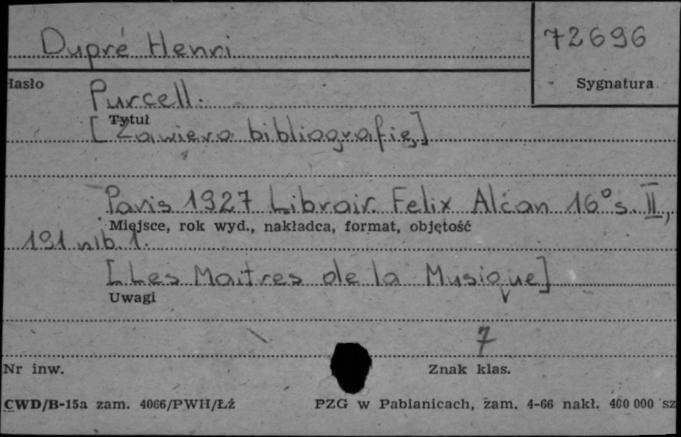 Dupré Henri
72696
Hasło
Sygnatura
Purcell.
Tytuł
[Zawiera bibliografię]
Paris 1927 Librair. Felix Alcan 16° s. II,
Miejsce, rok wyd., nakładca, format, objętość
191 nlb. 1.
[Les Maitres de la Musique]
Uwagi
7
Nr inw.
Znak klas.
CWD/B-15a zam. 4066/PWH/Łż
PZG w Pabianicach, zam. 4-66 nakł. 400 000 sz